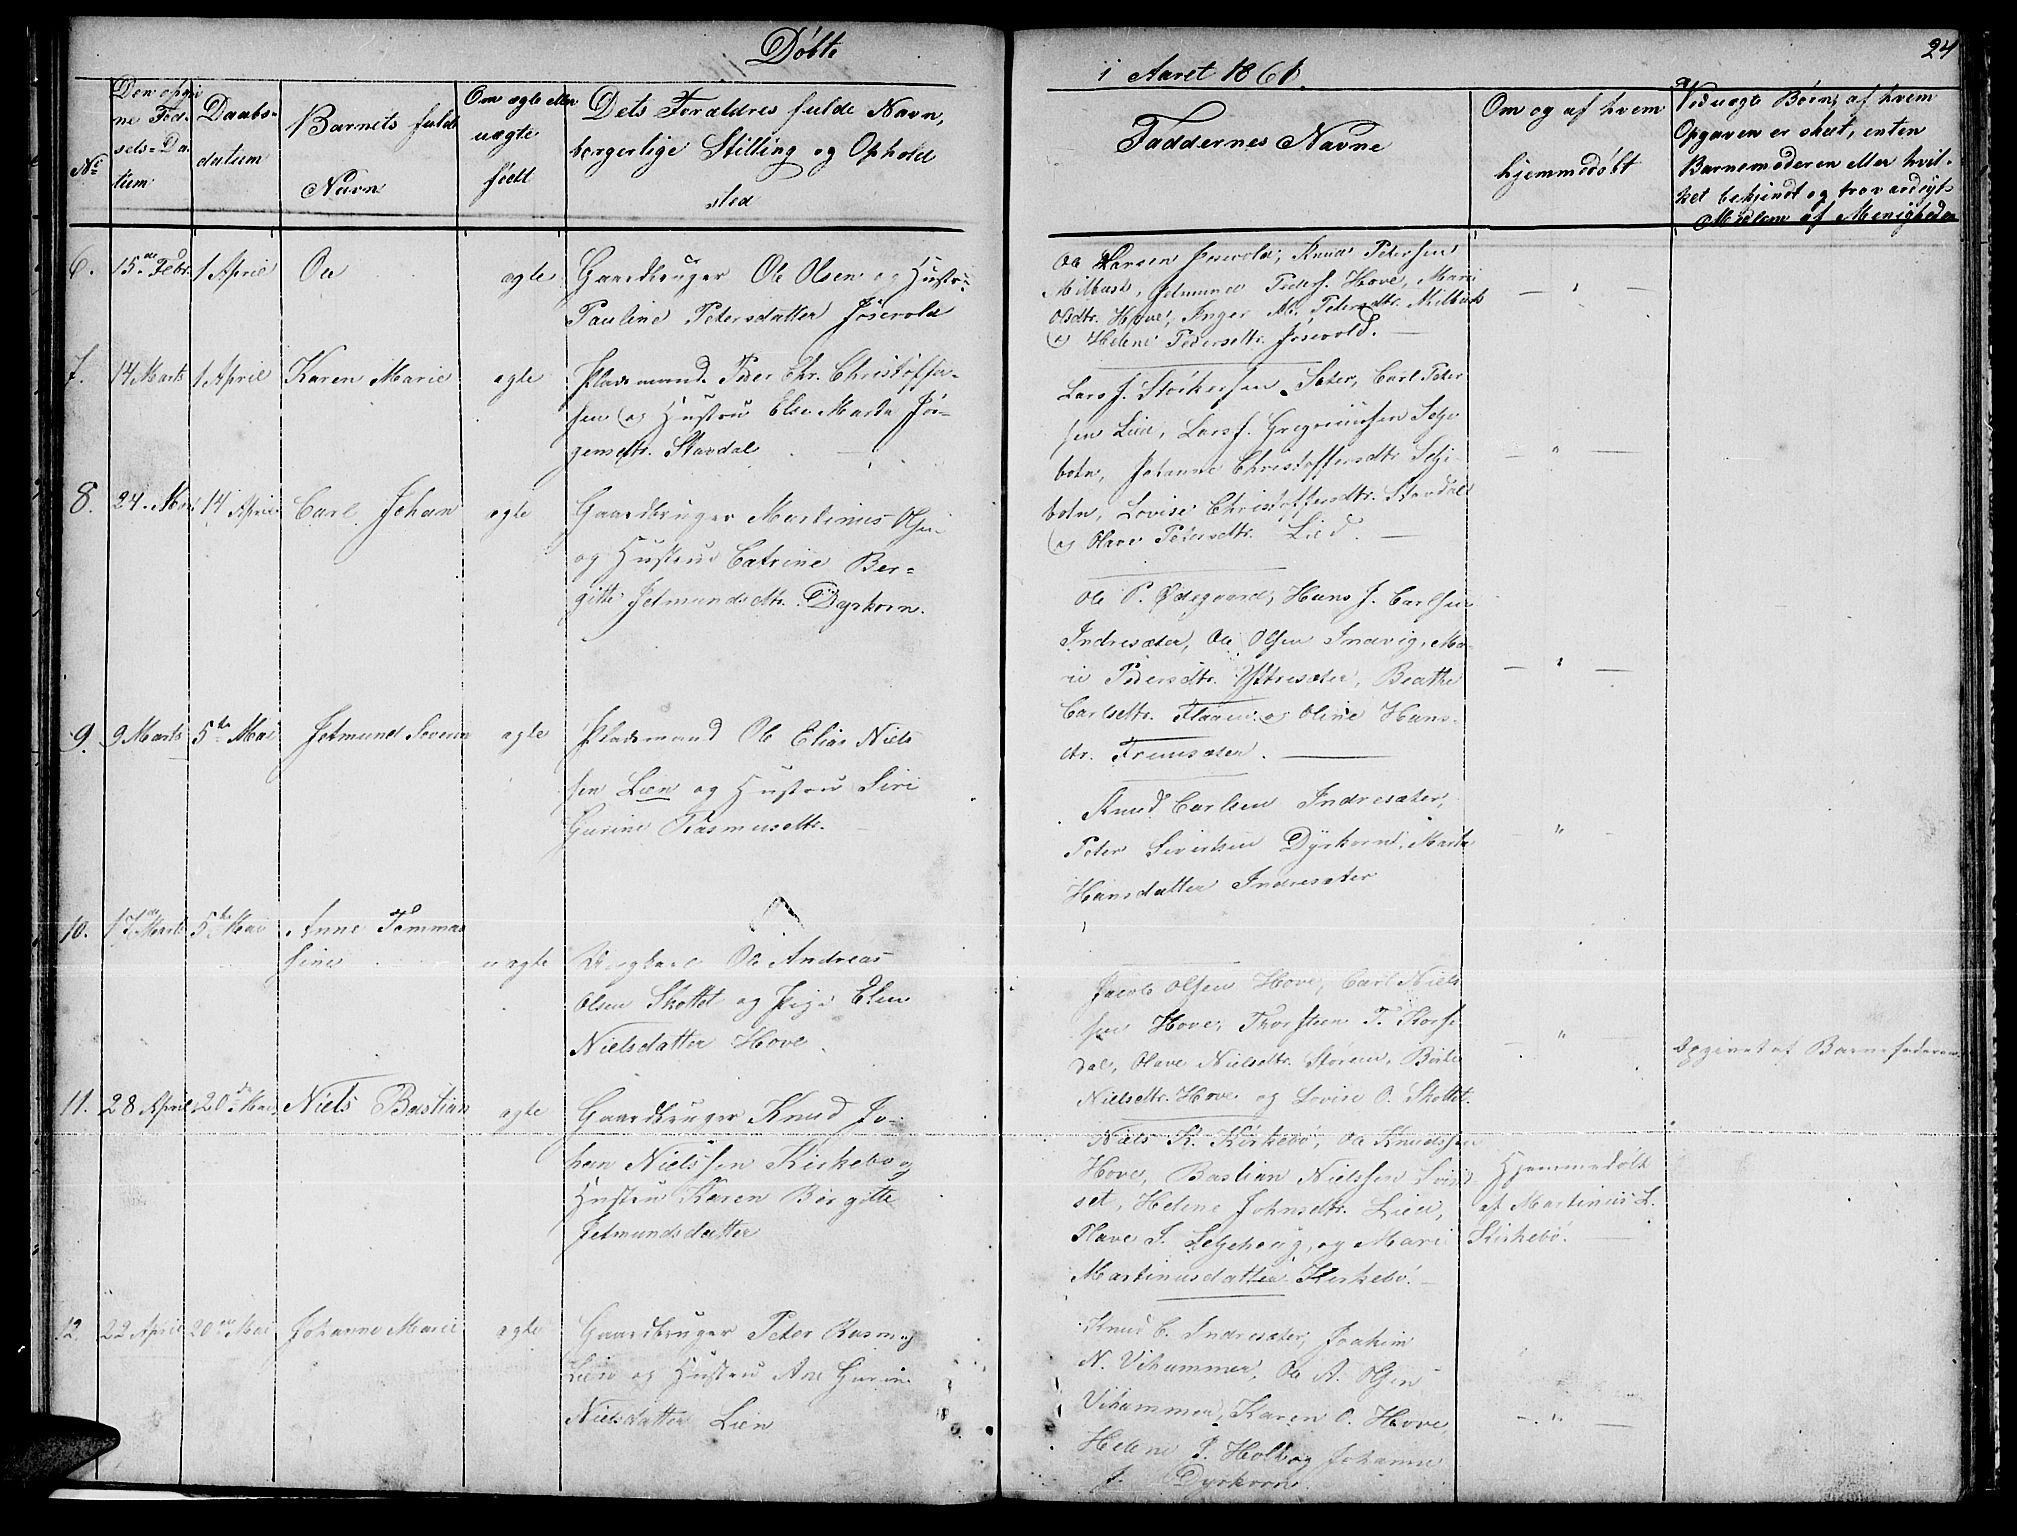 Döbte
i Aaret 1861.
24
No
Den opgi
ne Föd-
sels-Da
tum
Daabs-
datum
Barnets fulde
Navn
Om ægte eller
uægte
født
Dets Forældres fulde Navn,
borgerlige Stilling og Ophold
sted
Faddernes Navne
Om og af hvem
hjemmedöbt
Ved uægte Börn, af hvem
Opgaven er skeet, enten
Barnemoderen eller hvil-
ket bekjendt og troværdigt
Medlem af Menigheden
6.
15de Febr.
1 April
Oe
ægte
Gaardbruger Ole Olsen og Hustru
Pauline Petersdatter Jösevold
Ole Larsen Jösevold, Knud Petersen
Milbust, Jetmund Peders. Hove, Marie
Olsdtr. Hove, Inger M. Petersdtr. Milbust
og Helene Pedersdtr. Jösevold.
7.
14 Marts
1 April
Karen Marie
ægte
Pladsmand Peder Chr. Christoffer-
sen og Hustru Else Marta Jör-
gensdtr. Stavdal
Lars J. Störkersen Sæter, Carl Peter
sen Lied, Lars J. Gregoriussen Selje
botn, Johanne Christoffersdtr. Selje
botn, Lovise Christoffersdtr. Stavdal
og Olave Petersdtr. Lied.
8.
24. Mar
14 April
Carl Johan
ægte
Gaardbruger Martinus Olsen
og Hustru Catrine Ber-
gitte Jetmundsdtr. Dyrkorn.
Ole P. Ödegaard, Hans J. Carlsen
Indresæter, Ole Olsen Indvig, Ma-
rie Pedersdtr. Yttresæter, Beathe
Carlsdtr. Flaaen og Oline Hans-
dtr. Fremsæter.
9.
9 Marts
5te Mai
Jetmund Severin
ægte
Pladsmand Ole Elias Niels
sen Lien og Hustru Siri
Gurine Rasmusdtr.
Knud Carlsen Indresæter,
Peter Sivertsen Dyrkorn, Marta
Hansdatter Indresæter
10.
17de Marts
5te Mai
Anne Tommas
sine
uægte
Ungkarl Ole Andreas
Olsen Skottet og Pige Elen
Nielsdatter Hove
Jacob Olsen Hove, Carl Niels
sen Hove, Thorsteen T. Kors-
dal, Olave Nielsdtr. Storem, Berte
Nielsdtr. Hove og Lovise O. Skottet.
Opgivet af Barnefaderen
11.
28 April
20de Mai
Niels Bastian
ægte
Gaardbruger Knud Jo-
han Nielssen Kirkebö og
Hustru Karen Bergitte
Jetmundsdatter
Niels K. Kirkebö, Ole Knudssen
Hove, Bastian Nielssen
set, Helene Johnsdtr. Lien,
Olave S. Seljehoug, og Mari
Martinusdatter Kirkebö.
Hjemmedöbt
af Martinus L.
Kirkebö.
12.
22 April
20de Mai
Johanne Marie
ægte
Gaardbruger Peter Rasm
Lien og Hustru Ane Gurine
Nielsdatter Lien
Knud C. Indresæter, Joakim
N. Vihammer, Ole A. Olsen
Vihammer, Karen O. Hove,
Helene P. Hol og Johanne
J. Dyrkorn